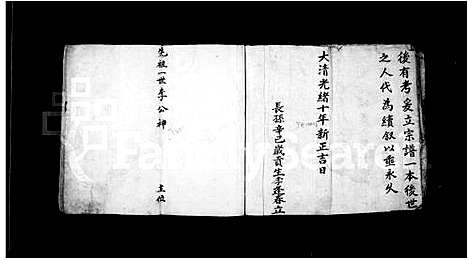 後有考爰立宗譜一本後世
之人代為續叙以垂永久
大清光緒十年新正吉日
長孫辛巳歲貢生李逢春立
先祖一世李公神
主位